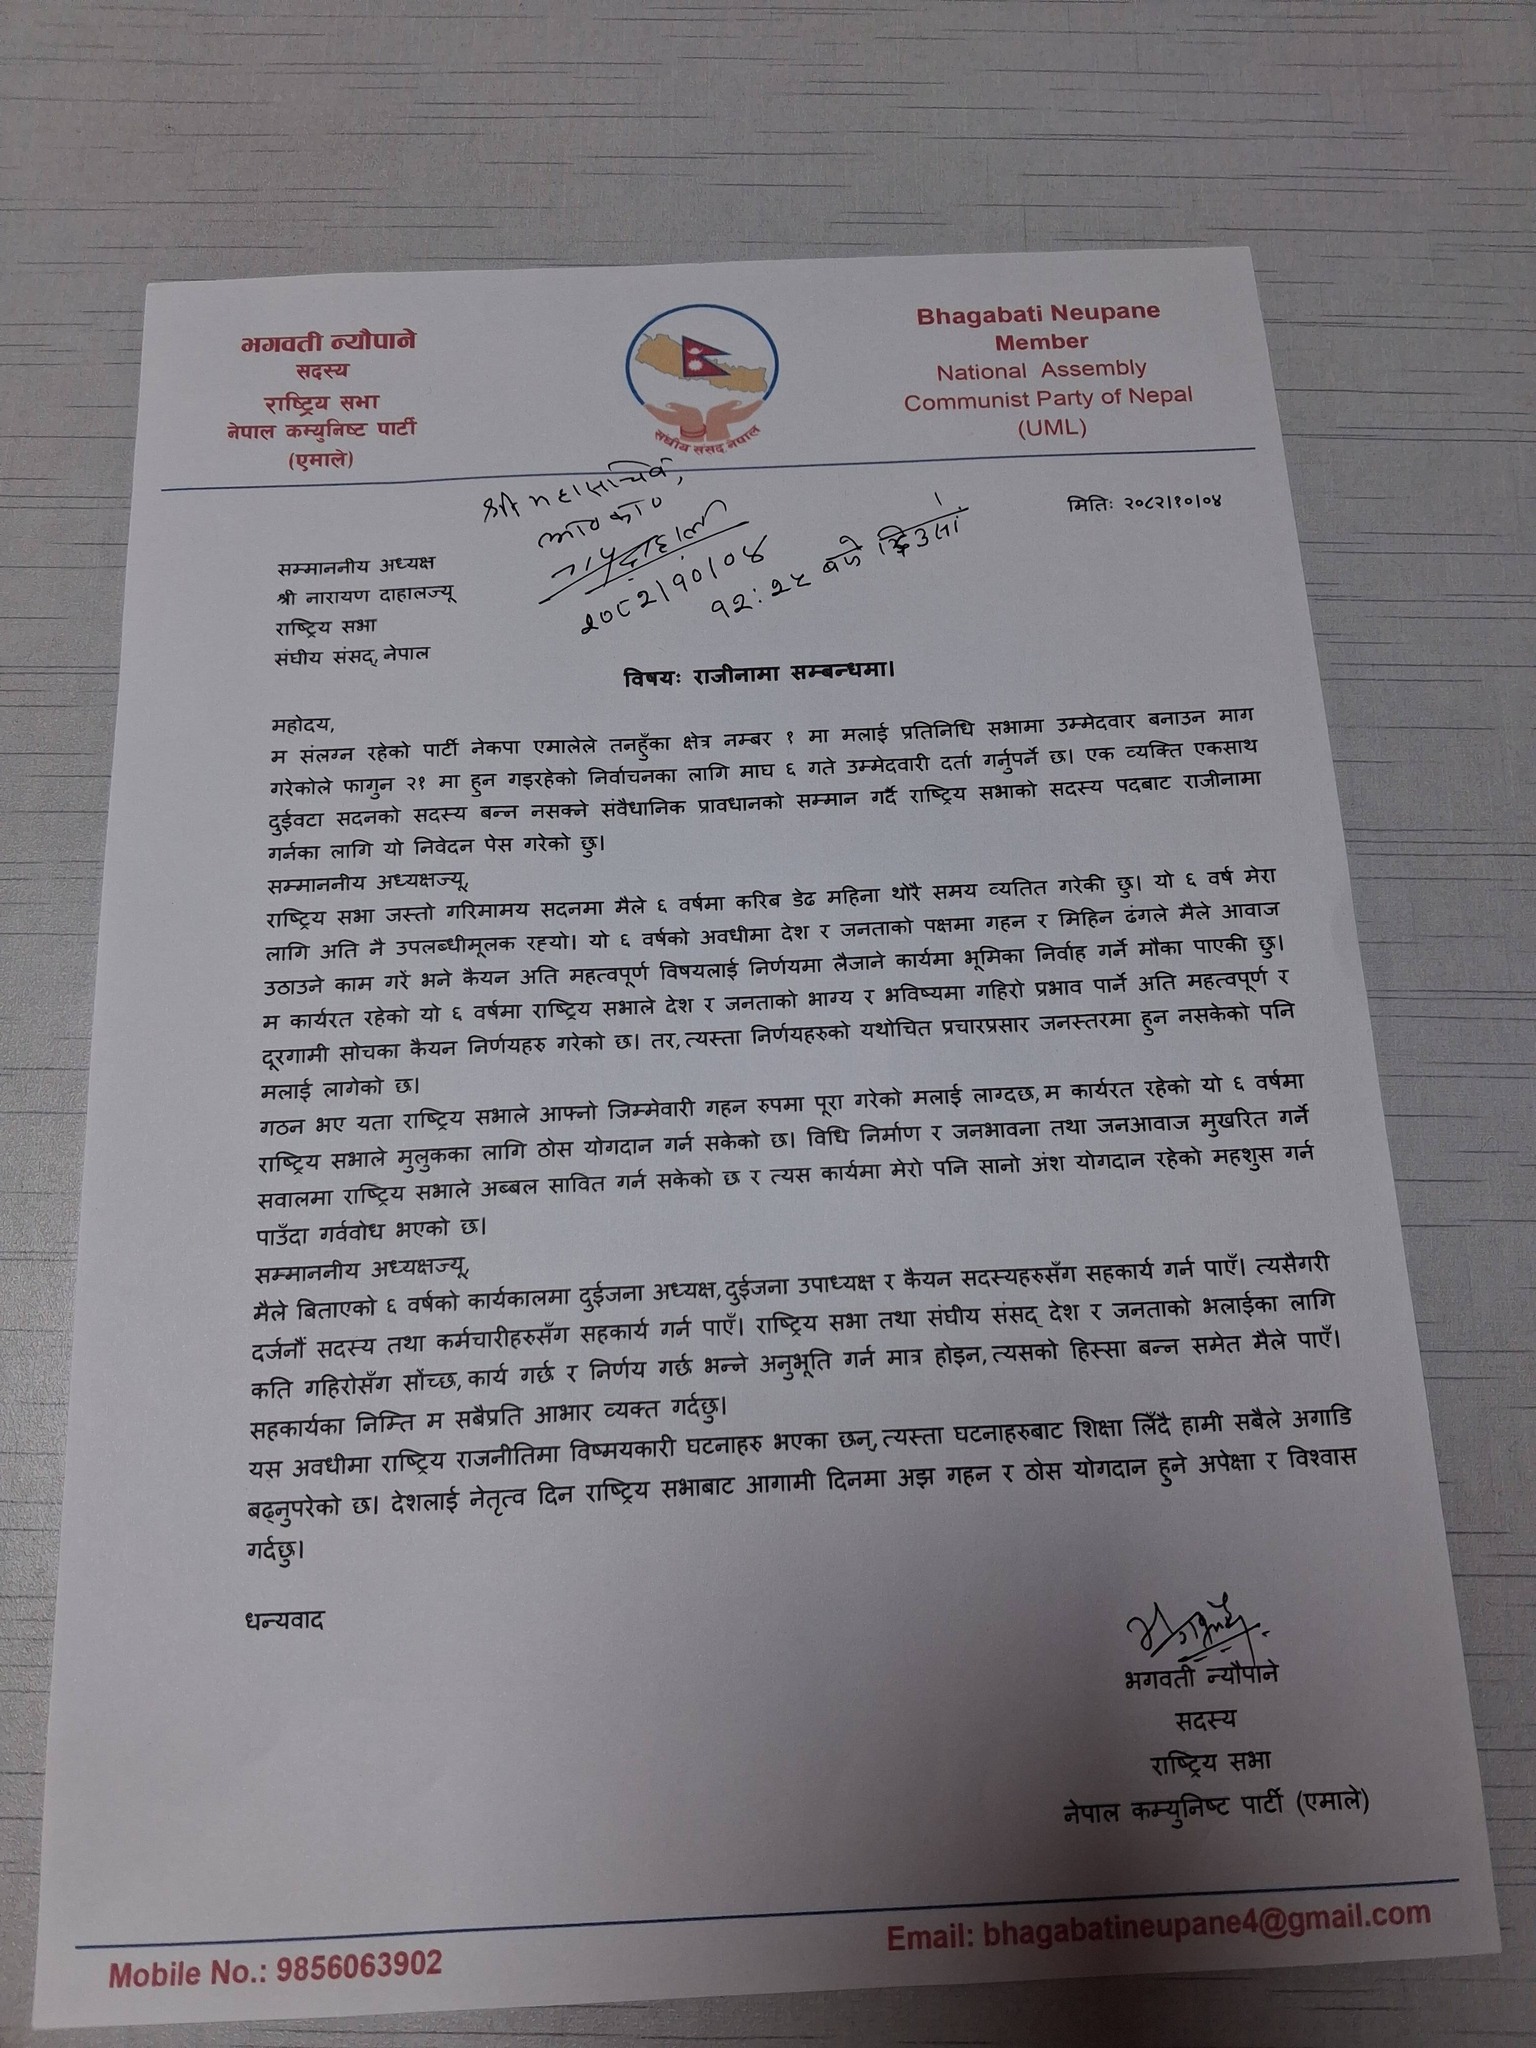 भगवती न्यौपाने
सदस्य
राष्ट्रिय सभा
नेपाल कम्युनिष्ट पार्टी
(एमाले)
संघीय संसद, नेपाल
Bhagabati Neupane
Member
National Assembly
Communist Party of Nepal
(UML)
श्री महासचिव,
आ०का०
२०८२।१०।०४
१२:२५ बजे दिउसो।
मितिः २०८२।१०।०४
सम्माननीय अध्यक्ष
श्री नारायण दाहालज्यू
राष्ट्रिय सभा
संघीय संसद्, नेपाल
विषयः राजीनामा सम्बन्धमा।
महोदय,
म संलग्न रहेको पार्टी नेकपा एमालेले तनहुँका क्षेत्र नम्बर १ मा मलाई प्रतिनिधि सभामा उम्मेदवार बनाउन माग
गरेकोले फागुन २१ मा हुन गइरहेको निर्वाचनका लागि माघ ६ गते उम्मेदवारी दर्ता गर्नुपर्ने छ। एक व्यक्ति एकसाथ
दुईवटा सदनको सदस्य बन्न नसक्ने संवैधानिक प्रावधानको सम्मान गर्दै राष्ट्रिय सभाको सदस्य पदबाट राजीनामा
गर्नका लागि यो निवेदन पेस गरेको छु।
सम्माननीय अध्यक्षज्यू,
राष्ट्रिय सभा जस्तो गरिमामय सदनमा मैले ६ वर्षमा करिब डेढ महिना थोरै समय व्यतित गरेकी छु। यो ६ वर्ष मेरा
लागि अति नै उपलब्धीमूलक रह्यो। यो ६ वर्षको अवधीमा देश र जनताको पक्षमा गहन र मिहिन ढंगले मैले आवाज
उठाउने काम गरें भने कैयन अति महत्वपूर्ण विषयलाई निर्णयमा लैजाने कार्यमा भूमिका निर्वाह गर्ने मौका पाएकी छु।
म कार्यरत रहेको यो ६ वर्षमा राष्ट्रिय सभाले देश र जनताको भाग्य र भविष्यमा गहिरो प्रभाव पार्ने अति महत्वपूर्ण र
दूरगामी सोचका कैयन निर्णयहरु गरेको छ। तर, त्यस्ता निर्णयहरुको यथोचित प्रचारप्रसार जनस्तरमा हुन नसकेको पनि
मलाई लागेको छ।
गठन भए यता राष्ट्रिय सभाले आफ्नो जिम्मेवारी गहन रुपमा पूरा गरेको मलाई लाग्दछ, म कार्यरत रहेको यो ६ वर्षमा
राष्ट्रिय सभाले मुलुकका लागि ठोस योगदान गर्न सकेको छ। विधि निर्माण र जनभावना तथा जनआवाज मुखरित गर्ने
सवालमा राष्ट्रिय सभाले अब्बल सावित गर्न सकेको छ र त्यस कार्यमा मेरो पनि सानो अंश योगदान रहेको महशुस गर्न
पाउँदा गर्ववोध भएको छ।
सम्माननीय अध्यक्षज्यू,
मैले बिताएको ६ वर्षको कार्यकालमा दुईजना अध्यक्ष, दुईजना उपाध्यक्ष र कैयन सदस्यहरुसँग सहकार्य गर्न पाएँ। त्यसैगरी
दर्जनौं सदस्य तथा कर्मचारीहरुसँग सहकार्य गर्न पाएँ। राष्ट्रिय सभा तथा संघीय संसद् देश र जनताको भलाईका लागि
कति गहिरोसँग सोंच्छ, कार्य गर्छ र निर्णय गर्छ भन्ने अनुभूति गर्न मात्र होइन, त्यसको हिस्सा बन्न समेत मैले पाएँ।
सहकार्यका निम्ति म सबैप्रति आभार व्यक्त गर्दछु।
यस अवधीमा राष्ट्रिय राजनीतिमा विष्मयकारी घटनाहरु भएका छन्, त्यस्ता घटनाहरुबाट शिक्षा लिँदै हामी सबैले अगाडि
बढ्नुपरेको छ। देशलाई नेतृत्व दिन राष्ट्रिय सभाबाट आगामी दिनमा अझ गहन र ठोस योगदान हुने अपेक्षा र विश्वास
गर्दछु।
धन्यवाद
भगवती न्यौपाने
सदस्य
राष्ट्रिय सभा
नेपाल कम्युनिष्ट पार्टी (एमाले)
Mobile No.: 9856063902
Email: bhagabatineupane4@gmail.com